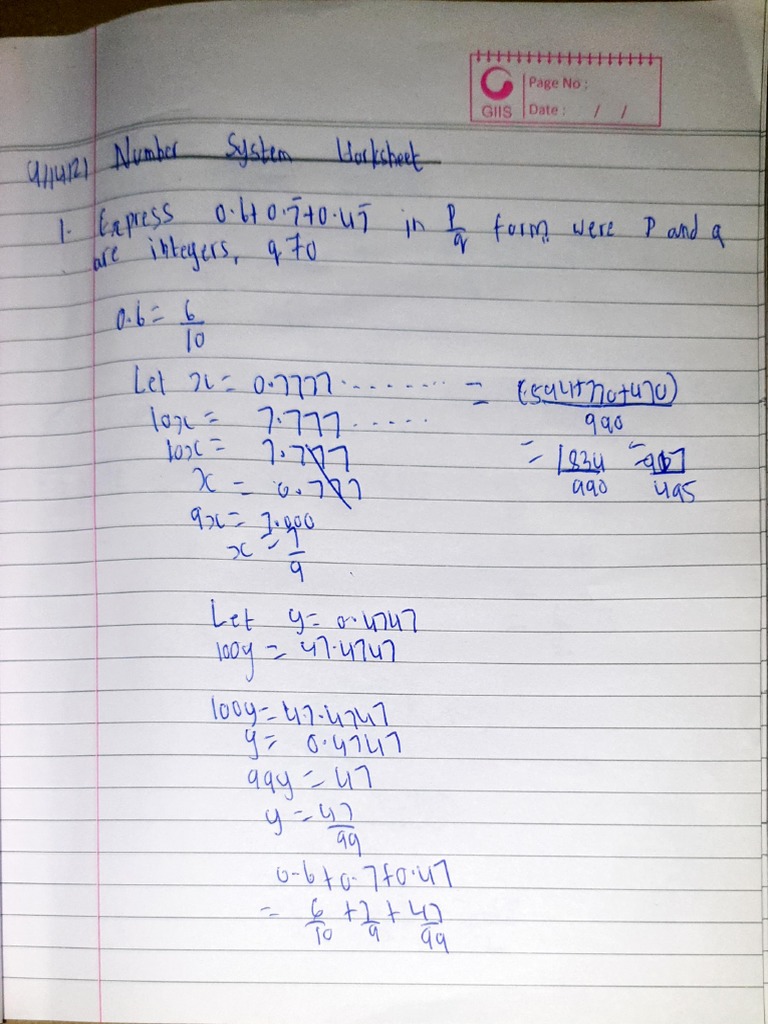 GIIS
Page No :
Date : / /
4/14/21 Number System Worksheet
1. Express 0.6+0.7̄+0.47̄ in p/q form were p and q
are integers, q≠0
0.6 = 6/10
Let x = 0.7777..........
10x = 7.777.....
10x = 7.777
x = 0.777
9x = 7.000
x = 7/9
Let y = 0.4747
100y = 47.4747
100y = 47.4747
y = 0.4747
99y = 47
y = 47/99
0.6+0.7+0.47
= 6/10 + 7/9 + 47/99
= (594+770+470)/990
= 1834/990 = 917/495